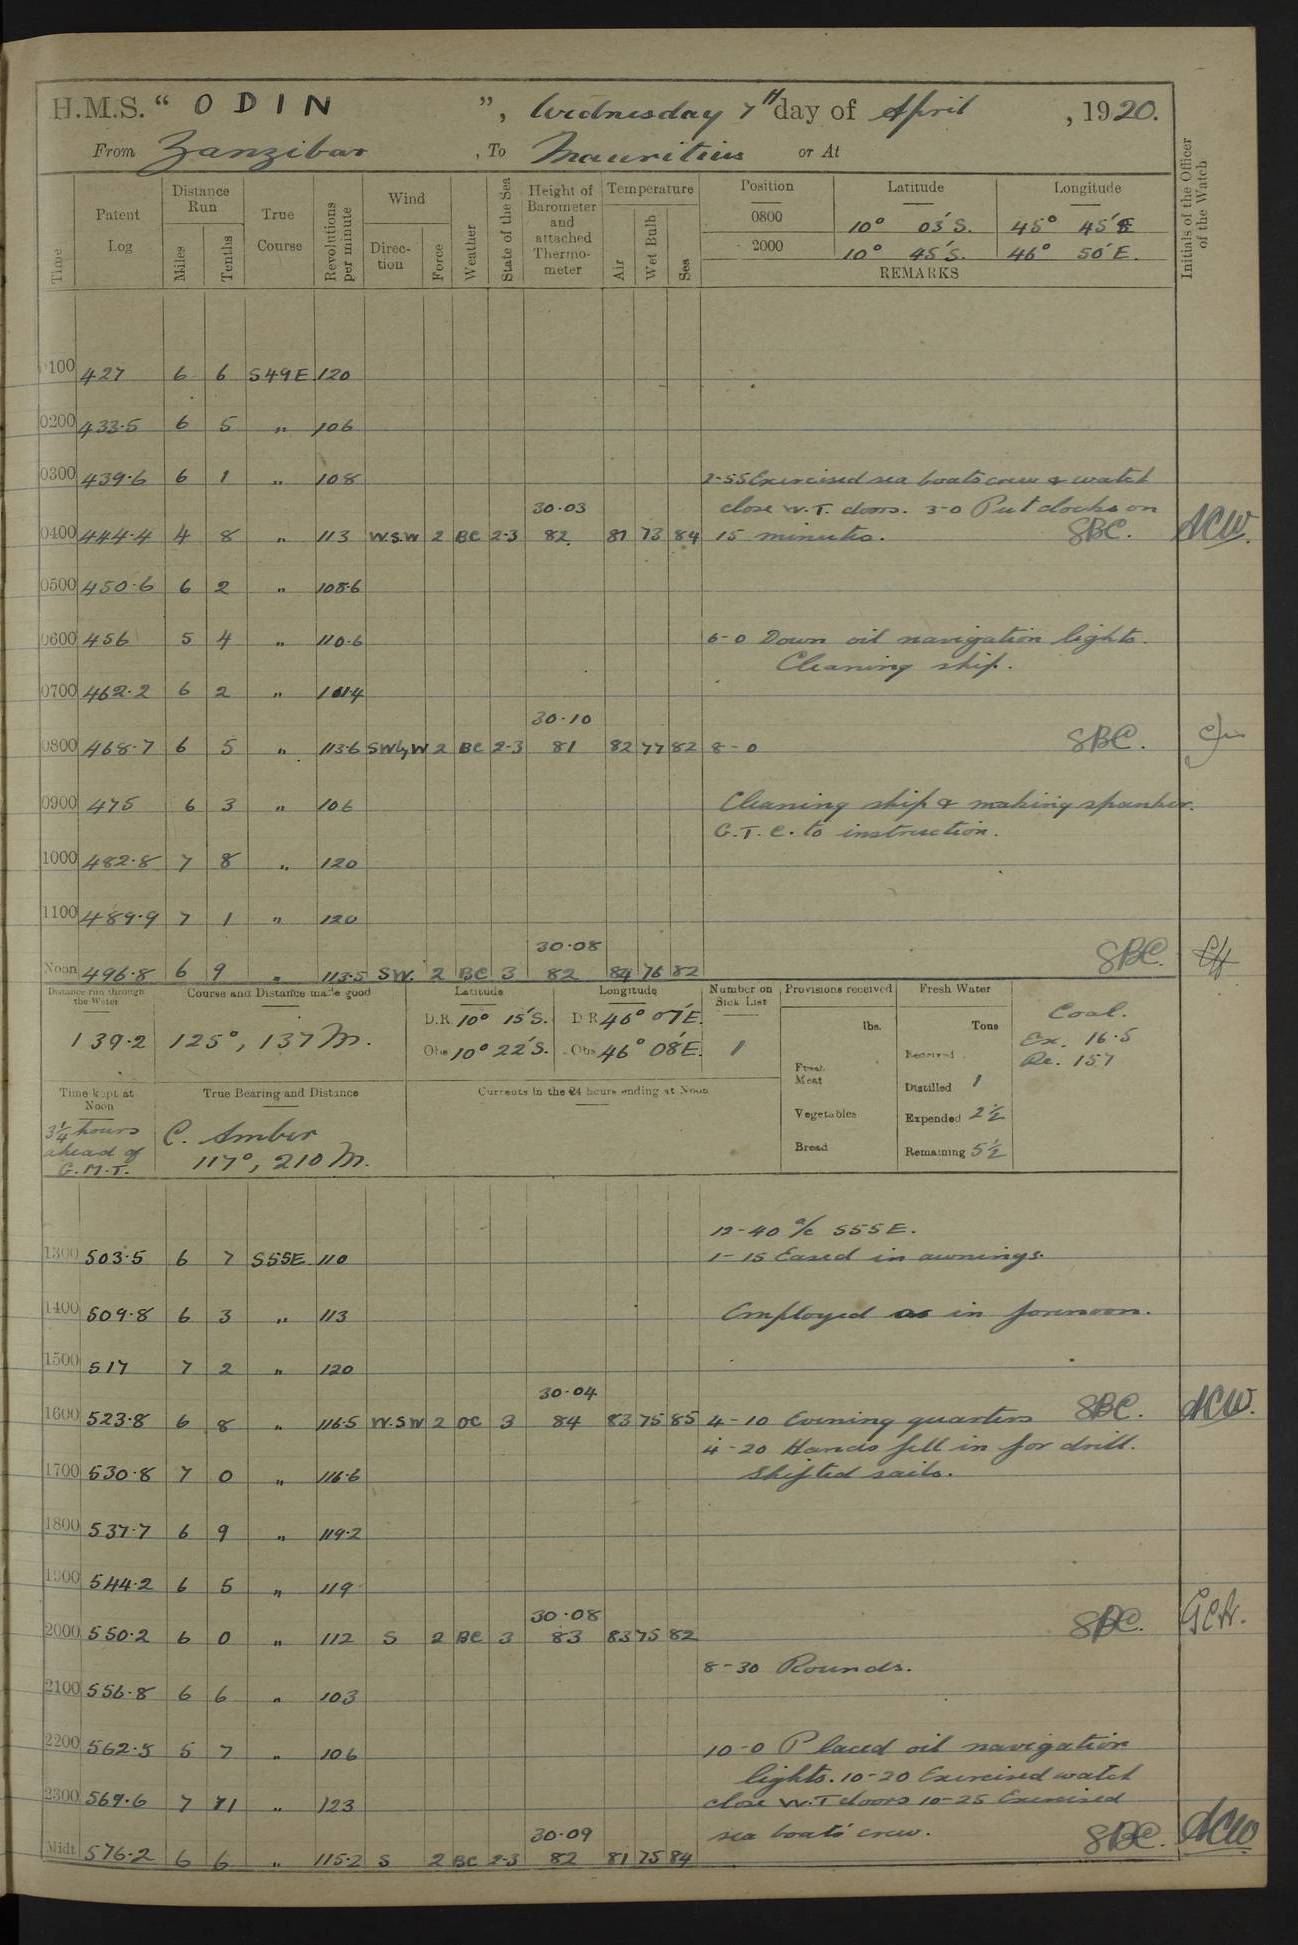 H.M.S. “ ODIN ”, Wednesday 7th day of April, 1920.
From Zanzibar, To Mauritius or At
Time
Patent Log
Distance Run
Miles
Tenths
True Course
Revolutions per minute
Wind
Direction
Force
Weather
State of the Sea
Height of Barometer and attached Thermometer
Temperature
Air
Wet Bulb
Sea
Position Latitude Longitude
0800 10° 03'S. 45° 45'E
2000 10° 45'S. 46° 50'E.
REMARKS
Initials of the Officer of the Watch
0100 427 6 6 S49E 120
0200 433·5 6 5 „ 106
0300 439·6 6 1 „ 108 2-55 Exercised sea boats crew & watch
30·03 close W.T. doors. 3-0 Put clocks on
0400 444·4 4 8 „ 113 W.S.W 2 BC 2-3 82 81 73 84 15 minutes. SBC. ACW.
0500 450·6 6 2 „ 108·6
0600 456 5 4 „ 110·6 6-0 Down oil navigation lights.
Cleaning ship.
0700 462·2 6 2 „ 101·4
30·10
0800 468·7 6 5 „ 113·6 SWbyW 2 BC 2-3 81 82 77 82 8-0 SBC.
0900 475 6 3 „ 106 Cleaning ship & making spanker.
G.T.C. to instruction.
1000 482·8 7 8 „ 120
1100 489·9 7 1 „ 120
30·08
Noon 496·8 6 9 „ 113·5 SW. 2 BC 3 82 84 76 82 SBC.
Distance run through the Water
139·2
Course and Distance made good
125°, 137 M.
Latitude Longitude
D.R 10° 15'S. D R 46° 07'E.
Obs 10° 22'S. Obs 46° 08'E.
Number on Sick List
1
Provisions received
lbs.
Fresh Meat
Vegetables
Bread
Fresh Water
Tons
Received
Distilled 1
Expended 2½
Remaining 5½
Coal.
Ex. 16·5
Re. 157
Time kept at Noon
3¼ hours
ahead of
G.M.T.
True Bearing and Distance
C. Amber
117°, 210 M.
Currents in the 24 hours ending at Noon
12-40 a/c S55E.
1300 503·5 6 7 S55E 110 1-15 Eased in awnings.
1400 509·8 6 3 „ 113 Employed as in forenoon.
1500 517 7 2 „ 120
30·04
1600 523·8 6 8 „ 116·5 W.SW 2 OC 3 84 83 75 85 4-10 Evening quarters SBC. ACW.
4-20 Hands fell in for drill.
1700 530·8 7 0 „ 116·6 Shifted sails.
1800 537·7 6 9 „ 119·2
1900 544·2 6 5 „ 119
30·08
2000 550·2 6 0 „ 112 S 2 BC 3 83 83 75 82 SBC.
8-30 Rounds.
2100 556·8 6 6 „ 103
2200 562·5 5 7 „ 106 10-0 Placed oil navigation
lights. 10-20 Exercised watch
2300 569·6 7 1 „ 123 close W.T doors 10-25 Exercised
30·09 sea boats' crew.
Midt 576·2 6 6 „ 115·2 S 2 BC 2-3 82 81 75 84 SBC. ACW